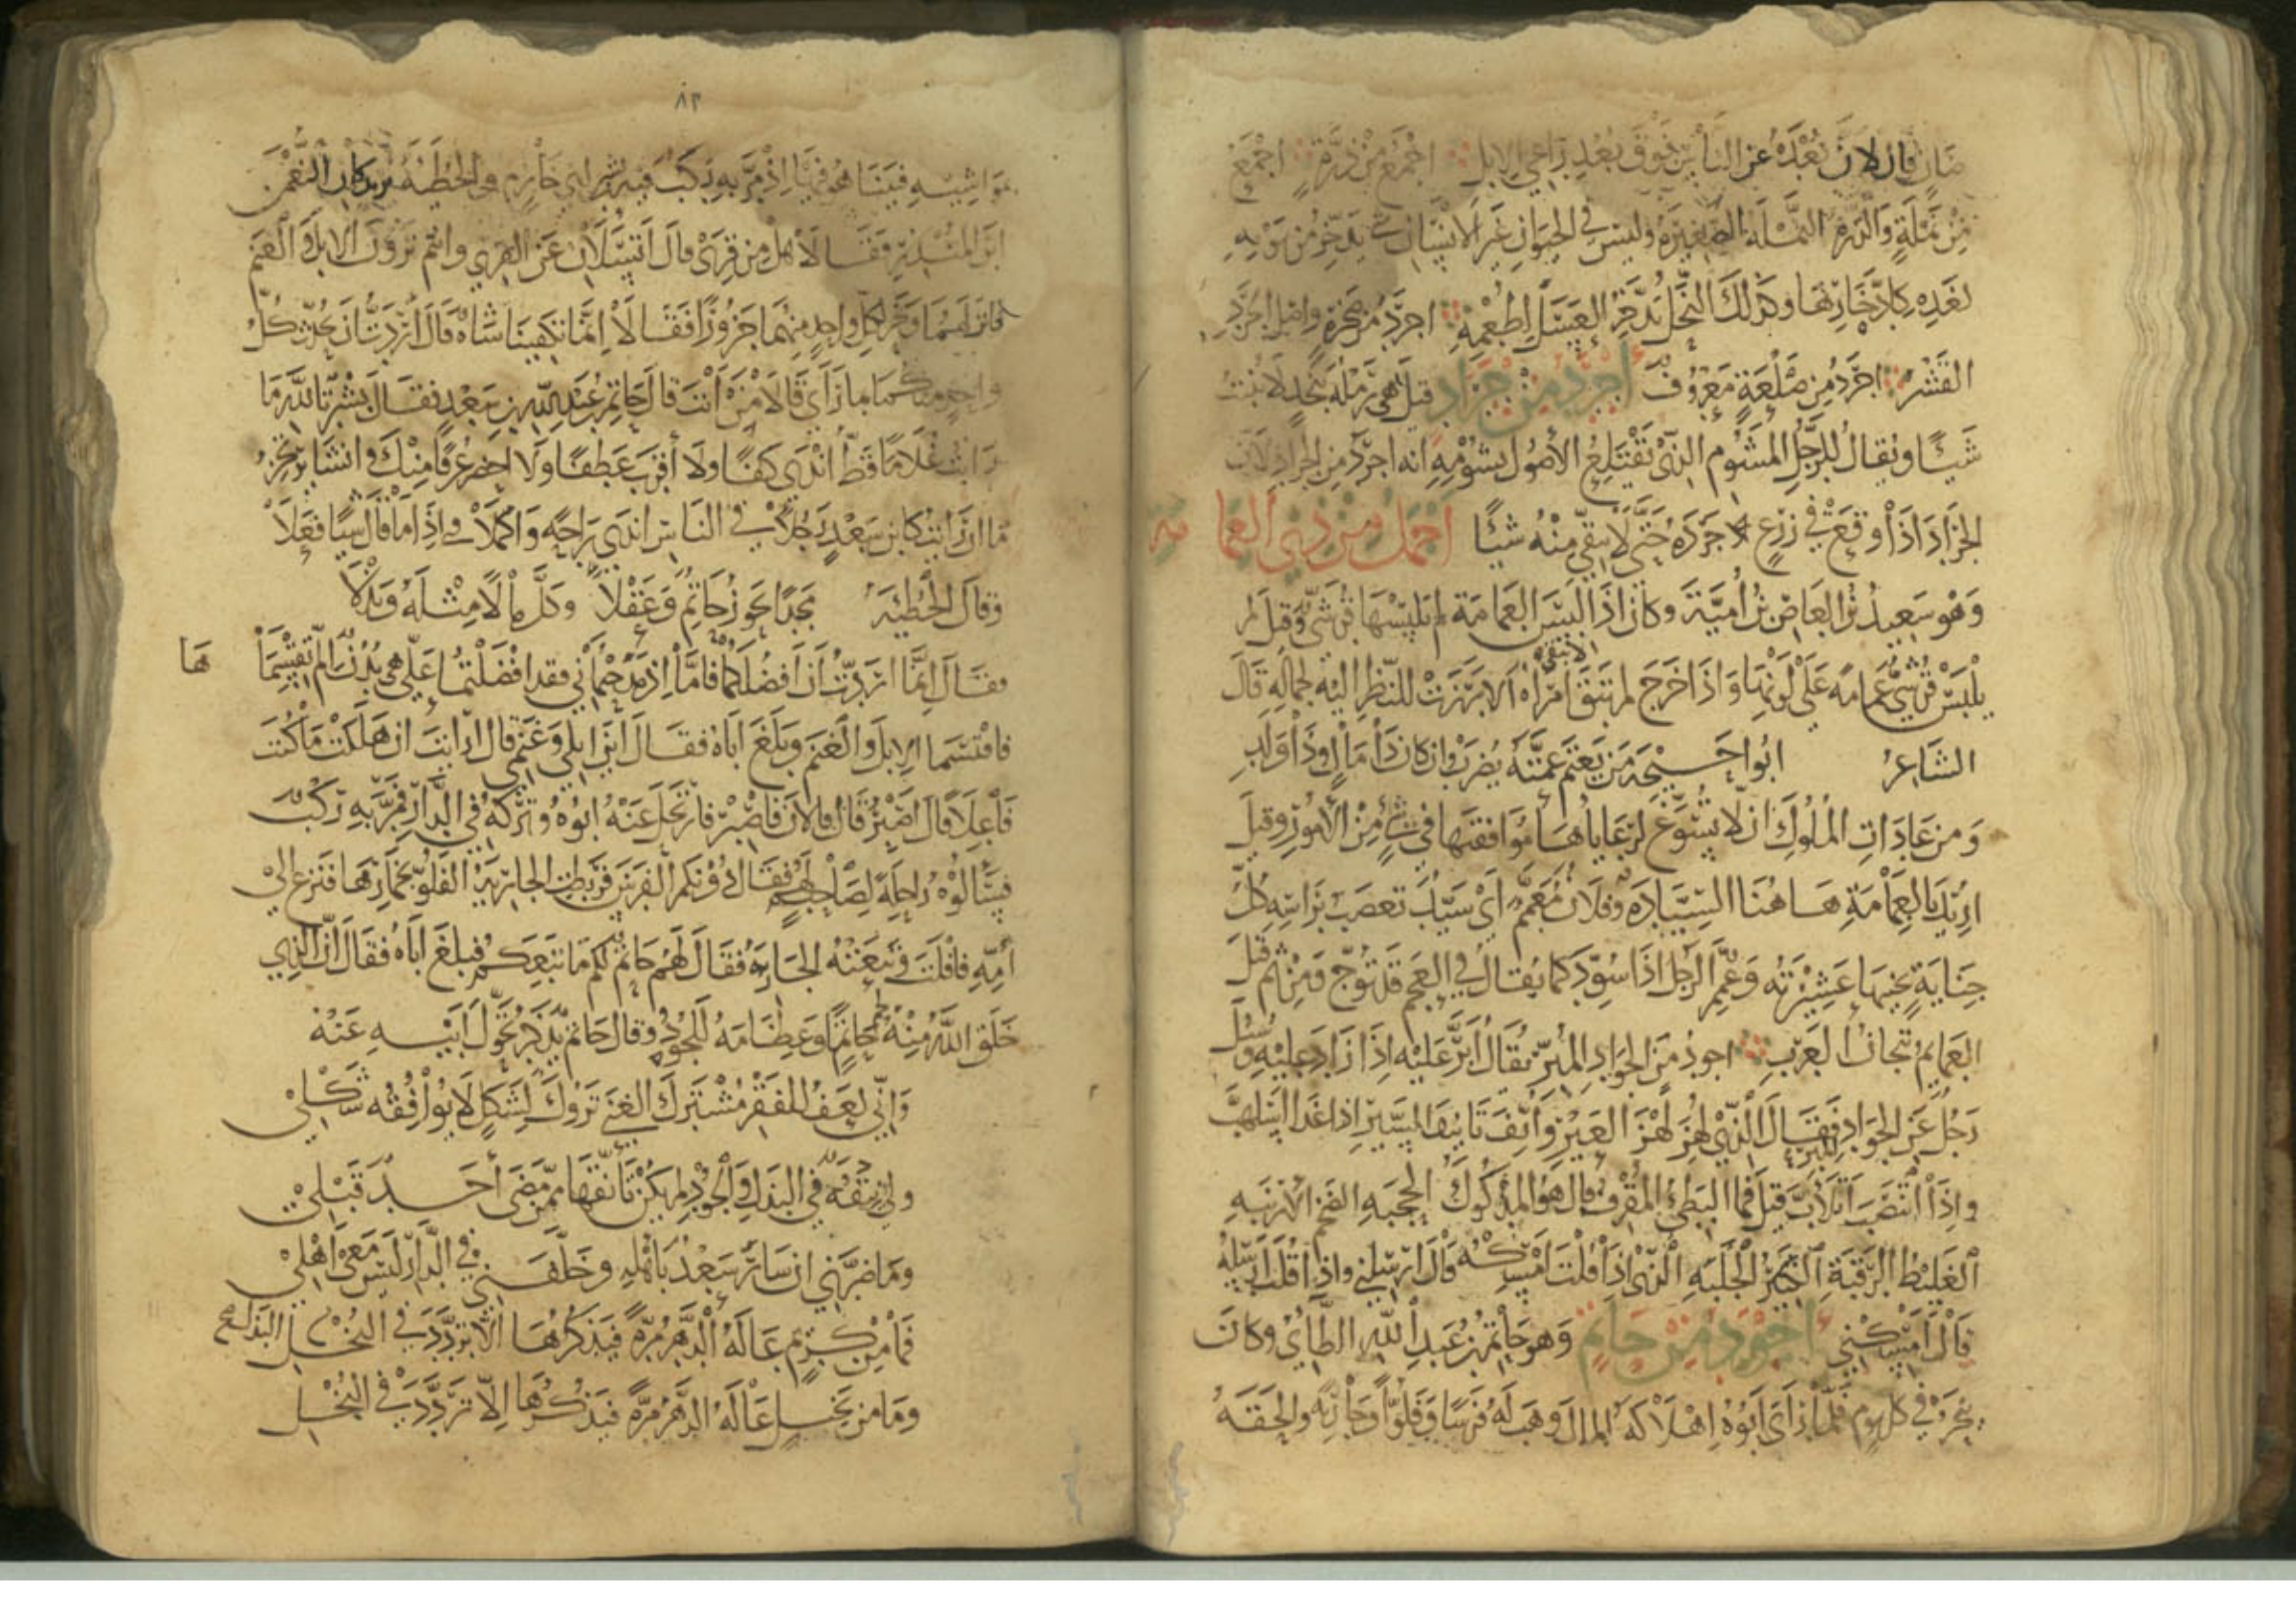 ضان فان لان بعده عن الناس فوق بعد راعي الابل اجمع من ذرة اجمع
من نملة والذرة النملة الصغيرة وليس في الحيوان غير الانسان شي يدخر من يومه
لغده كادخارها وكذلك النحل تدخر العسل لطعمه اجرد من صخرة واصل الجرد
القشر اجرد من صلعة معروف اجرد من جراد قيل هي رملة بنجد لا تنبت
شيئا ويقال للرجل المشوم الذي يقتلع الاصول بشومه انه اجرد من الجراد لان
الجراد اذا وقع في زرع جرده حتى لا يبقي منه شيئا اجمل من ذي العمامه
وهو سعيد بن العاص بن امية وكان اذا لبس العمامة لم يلبسها قرشي وقيل لم
يلبس قرشي عمامه على لونها واذا خرج لم تبق امراه الا برزت للنظر اليه لجماله قال
الشاعر ابوا حيحه من يعتم عمته يضرب وان كان ذا مال وذا ولد
ومن عادات الملوك ان لا يسوغ لرعاياها موافقتها في شي من الامور وقيل
اريد بالعمامة هاهنا السيادة وفلان معمم اي سيد تعصب براسه كل
جناية يجنيها عشيرته وعمم الرجل اذا سود كما يقال في العجم قد توج ومن ثم قيل
العمايم تيجان العرب اجود من الجواد المبر يقال ابر عليه اذا زاد عليه وسئل
رجل عن الجواد المبر فقال الذي لهز لهز العير وانف تانيف السير اذا عدا اسلهب
واذا انتصب اتلاب قيل فما البطي المقرف قال هو المدكوك الحجبه الضخم الارنبه
الغليظ الرقبة الكثير الجلبه الذي اذا قلت امسكه قال ارسلني واذا قلت ارسله
قال امسكني اجود من حاتم وهو حاتم بن عبد الله الطائي وكان
ينحر في كل يوم فلما راى ابوه اهلاكه المال وهب له فرسا وفلوا وجارية والحقه
٨٢
بمواشيه فبينا هو فيها اذ مر به ركب فيه بشر ابن ابي خازم والحطيه يريدان النعمن
ابن المنذر فقالا هل من قرى قال اتسلان عن القرى وانتم ترون الابل والغنم
فانزلهما ونحر لكل واحد منهما جزورا فقالا انما تكفينا شاة قال اردت ان يحدث كل
واحد منكما بما راى قالا من انت قال حاتم بن عبد الله بن سعد فقال بشر تالله ما
رايت غلاما قط اندى كفا ولا اقرب عطفا ولا احضر عرفا منك وانشا يرتجز
ما ان رايت كابن سعد رجلا في الناس اندى راحه واكملا اذا ما قال شيا فعلا
وقال الحطئيه مجدا يحوز حاتم وعقلا وكل مالا مثله وبذلا
فقال انما اردت ان افضلكما فاما اذ مدحتماني فقد افضلتما علي هي بدن ان لم تقتسماها
فاقتسما الابل والغنم وبلغ اباه فقال اين ابلي وغنمي قال ارايت ان هلكت ما كنت
فاعلا قال اصبر قال فالان فاصبر فارتحل عنه ابوه وتركه في الدار فمر به ركب
فسالوه راحله لصاحبهم فقال دونكم الفرس فربطت الجارية الفلو بخمارها فنزع الى
امه فافلت وتبعته الجارية فقال لهم حاتم لكم ما تبعكم فبلغ اباه فقال ان الذي
خلق الله منه لحم حاتم وعظامه للجود وقال حاتم يذكر تحول ابيه عنه
واني لعف الفقر مشترك الغنى تروك لشكل لا يوافقه شكلي
ولي نيقة في البذل والجود لم يكن تانقها ممن مضى احد قبلي
وما ضرني ان سار سعد باهله وخلفني في الدار ليس معي اهلي
فما من كريم عاله الدهر مرة فيذكرها الا تردد في البخل البذل
وما من بخيل عاله الدهر مرة فيذكرها الا تردد في البخل